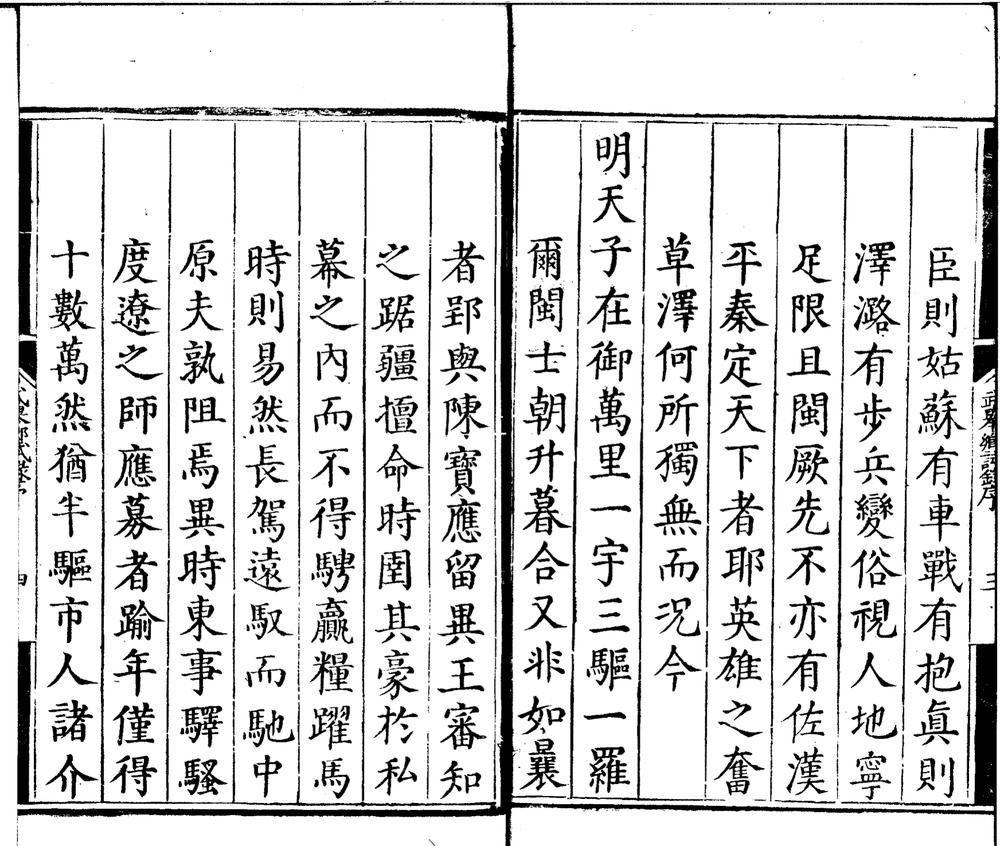 臣則姑蘇有車戰有抱眞則
澤潞有步兵變俗視人地寧
足限且閩厥先不亦有佐漢
平秦定天下者耶英雄之奮
草澤何所獨無而况今
明天子在御萬里一宇三驅一羅
爾閩士朝升暮合又非如曩
者郢與陳寶應留異王審知
之踞疆擅命時圉其豪於私
幕之內而不得騁贏糧躍馬
時則易然長駕遠馭而馳中
原夫孰阻焉異時東事驛騷
度遼之師應募者踰年僅得
十數萬然猶半驅市人諸介
武舉鄉試錄序
三
四